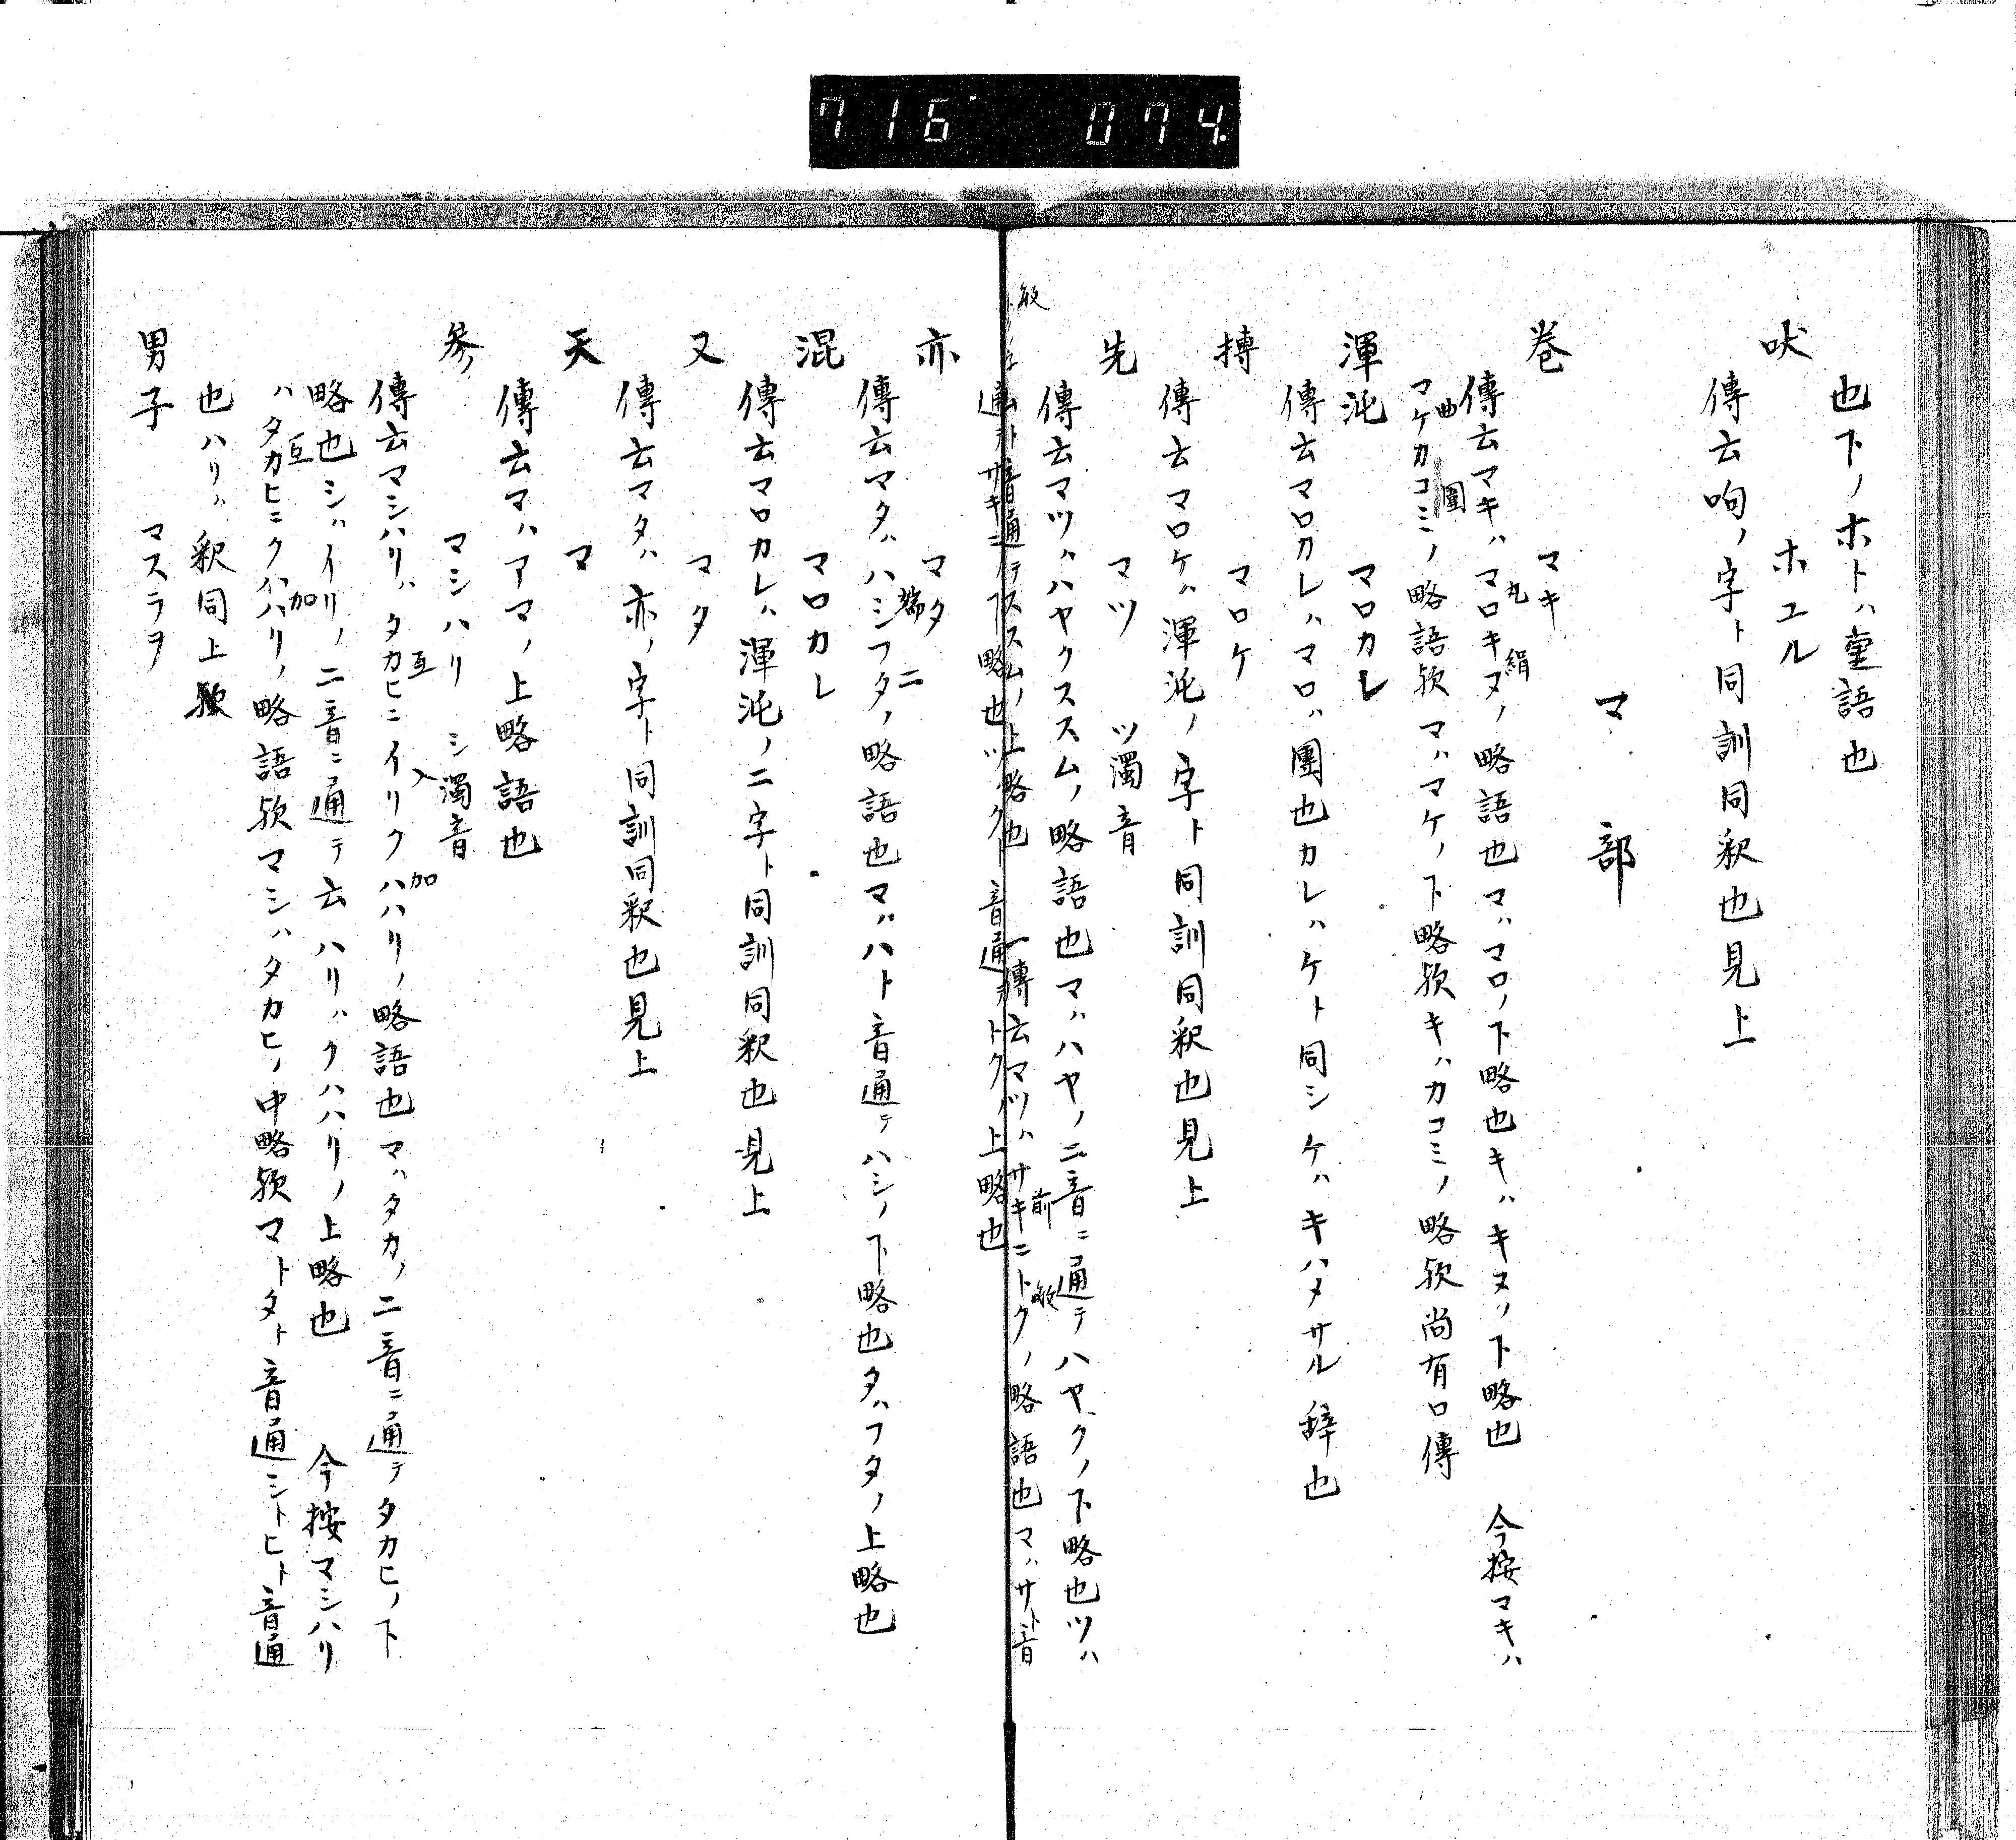 716 074
也下ノホトハ童語也
吠 ホユル
傳云呴ノ字ト同訓同釈也見上
マ部
巻 マキ
傳云マキハマロキヌノ略語也マハマロノ下略也キハキヌノ下略也 今按マキハ
丸 絹
マケカコミノ略語欤マハマケノ下略欤キハカコミノ略欤尚有口傳
曲 圍
渾沌 マロカレ
傳云マロカレハマロハ團也カレハケト同シケハキハメサル辞也
摶 マロケ
傳云マロケハ渾沌ノ字ト同訓同釈也見上
先 マツ ツ濁音
傳云マツハハヤクススムノ略語也マハハヤノ二音ニ通テハヤクノ下略也ツハ
音通テススムノ上略也 一傳云マツハサキニトクノ略語也マハサト音
前 敏
通テサキニノ下略也ツハクト音通テトクノ上略也
亦 マタ
傳云マタハハシフタノ略語也マハハト音通テハシノ下略也タハフタノ上略也
端 二
混 マロカレ
傳云マロカレハ渾沌ノ二字ト同訓同釈也見上
又 マタ
傳云マタハ亦ノ字ト同訓同釈也見上
天 マ
傳云マハアマノ上略語也
参 マシハリ シ濁音
傳云マシハリハタカヒニイリクハハリノ略語也マハタカノ二音ニ通テタカヒノ下
互 入 加
略也シハイリノ二音ニ通テ云ハリハクハハリノ上略也 今按マシハリ
ハタカヒニクハハリノ略語欤マシハタカヒノ中略欤マトタト音通シトヒト音通
互 加
也ハリハ釈同上欤
男子 マスラヲ